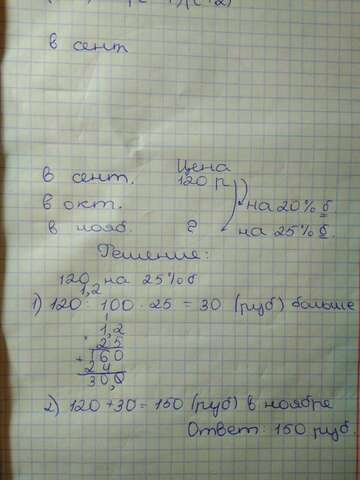 в сент
Цена
в сент. 120 р
в окт. на 20% б.
в нояб. ? на 25% б.
Решение:
120 на 25% б
1,2
1) 120 : 100 · 25 = 30 (руб) больше
1
1,2
25
+ 160
24
30,0
2) 120 + 30 = 150 (руб) в ноябре
Ответ: 150 руб.